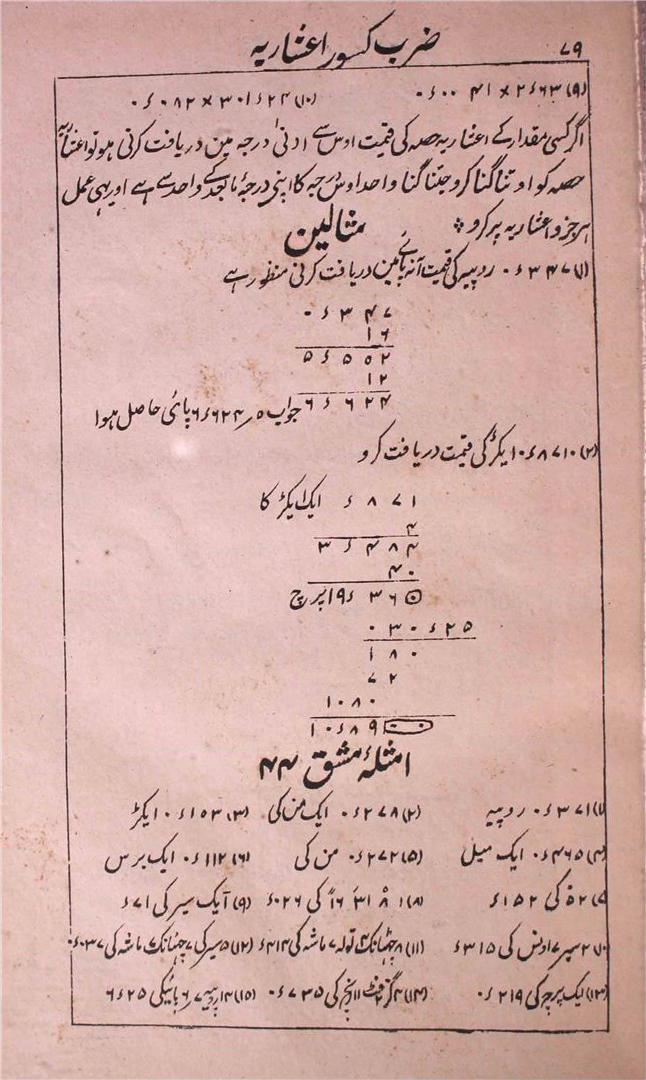 ۷۹ ضرب کسور اعشاریہ
(۹) ۲ء۶۳ × ۰ء۰۰۴۱ (۱۰) ۳۰۱ء۲۴ × ۰ء۰۸۲
اگر کسی مقدار کے اعشاریہ حصہ کی قیمت اوس سے ادنیٰ درجہ مین دریافت کرنی ہو تو اعشاریہ
حصہ کو اوتنا گنا کرو جتنا گنا واحد اوس درجہ کا اپنی درجۂ مابعد کے واحد سے ہے اور یہی عمل
ہر جزو اعشاریہ پر کرو
مثالین
(۱) ۰ء۳۴۷ روپیہ کی قیمت آنہ پائے مین دریافت کرنی منظور ہے
۰ء۳۴۷
۱۶
۵ء۵۵۲
۱۲
۶ء۶۲۴ جواب ۵ر ۶ء۶۲۴ پائی حاصل ہوا
(۲) ۰ء۸۷۱۰ ایکڑ کی قیمت دریافت کرو
ء۸۷۱ ایک ایکڑ کا
۴
۳ء۴۸۴
۴۰
۱۹ء۳۶۰ پرچ
۰۳۰ء۲۵
۱۸۰
۷۲
۱۰۸۰
۱۰ء۸۹۰۰
امثلۂ مشق ۴۴
(۱) ۰ء۳۷۱ روپیہ (۲) ۰ء۲۷۸ ایک من کی (۳) ۰ء۱۵۳ ایکڑ
(۴) ۰ء۴۶۵ ایک میل (۵) ۰ء۲۷۲ من کی (۶) ۰ء۱۱۲ ایک برس
(۷) ۵۲ کی ۱ء۱۵۲ (۸) ۸ ۳۱ ۱۶ کی ۰ء۰۲۶ (۹) ایک سیر کی ء۷۱
(۱۰) ۲ سیر ۷ اونس کی ء۳۱۵ (۱۱) ۸ چھٹانک ۴ تولہ ۷ ماشہ کی ء۴۱۴ (۱۲) ۵ سیر کی ۷ چھٹانک ۷ ماشہ کی ۰ء۰۳۷
(۱۳) ایک پرچ کی ۰ء۲۱۹ (۱۴) ۴ گز ۲ فٹ ۱۱ انچ کی ۰ء۷۳۵ (۱۵) ۱۴ روپیہ ۷ر ۶ پائیکی ۶ء۲۵